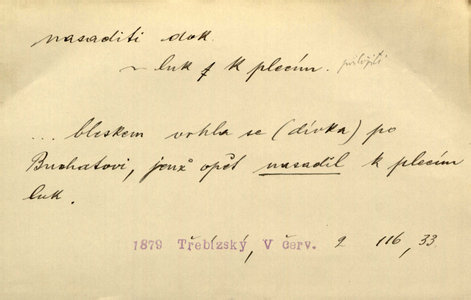 nasaditi dok.
~ luk k plecím. přiložiti
... bleskem vrhla se (dívka) po
Buchatovi, jenž opět nasadil k plecím
luk.
1879 Třebízský, V červ. 2 116, 33